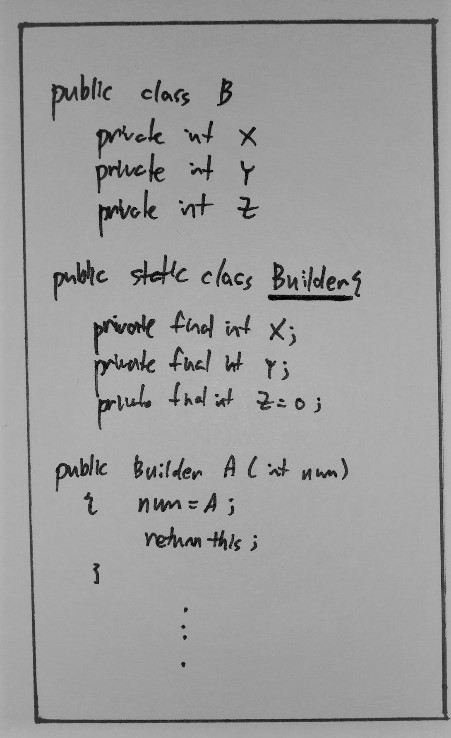 public class B
private int X
private int Y
private int Z
public static class Builder{
private final int X;
private final int Y;
private final int Z=0;
public Builder A (int num)
{ num=A;
return this;
}